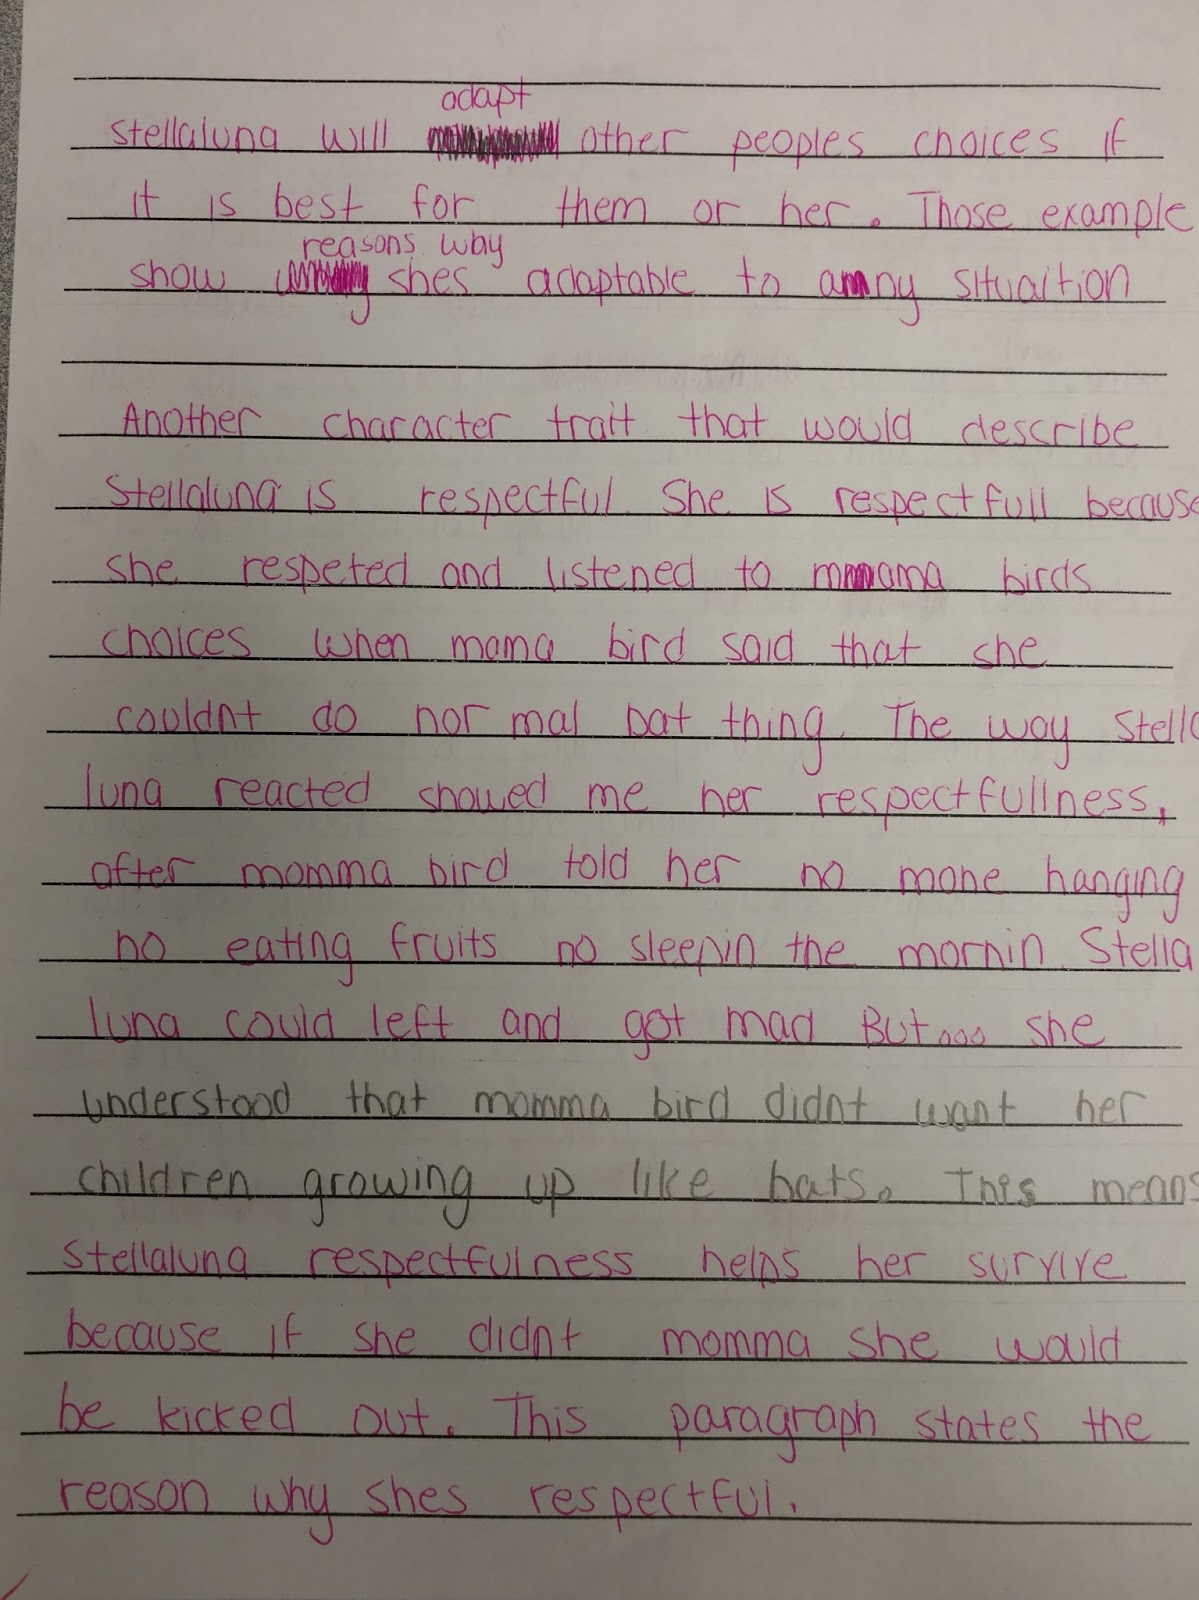 adapt
stellaluna will other peoples choices if
it is best for them or her. Those example
reasons way
show shes adaptable to any situaition
Another character trait that would describe
Stellaluna is respectful. She is respectfull because
she respeted and listened to mama birds
choices when mama bird said that she
couldnt do normal bat thing. The way Stella
luna reacted showed me her respectfullness,
after momma bird told her no mone hanging
no eating fruits no sleepin the mornin. Stella
luna could left and got mad But... she
understood that momma bird didnt want her
children growing up like bats. This means
stellaluna respectfulness helps her survive
because if she didnt momma she would
be kicked out. This paragraph states the
reason why shes respectful.